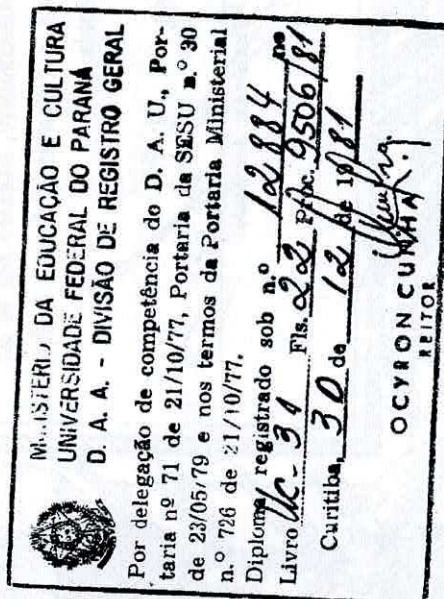 MINISTERIO DA EDUCAÇÃO E CULTURA
UNIVERSIDADE FEDERAL DO PARANÁ
D. A. A. - DIVISÃO DE REGISTRO GERAL
Por delegação de competência do D. A. U., Por-
taria nº 71 de 21/10/77, Portaria da SESU n.º 30
de 23/05/79 e nos termos da Portaria Ministerial
n.º 726 de 21/10/77.
Diploma registrado sob n.º 12884 no
Livro Uc-31 Fls. 22 Proc. 9506/81
Curitiba, 30 de 12 de 1981
OCYRON CUNHA
REITOR